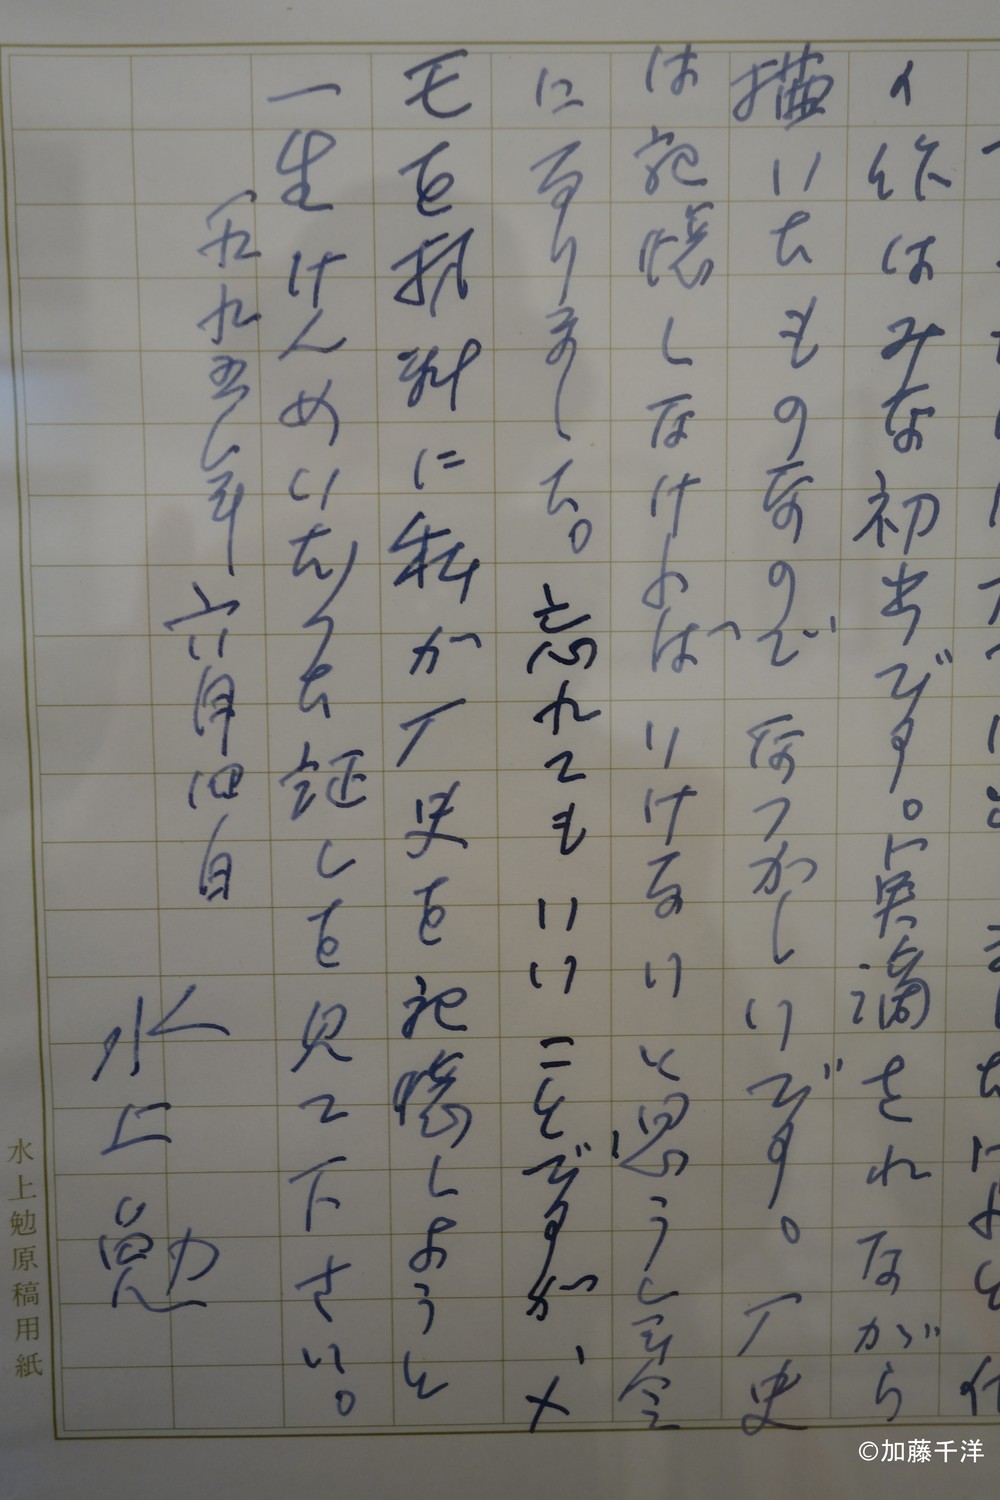 作はみな初出です。滴をされながら
描いたものなのでなつかしいです。厂史
は記憶しなければいけないと思うし年令
になりました。忘れてもいいことですが、メ
モを料に私が厂史を記憶しようと
一生けんめいだった証しを見て下さい。
一九九五年六月四日
水上勉
水上勉原稿用紙
©加藤千洋